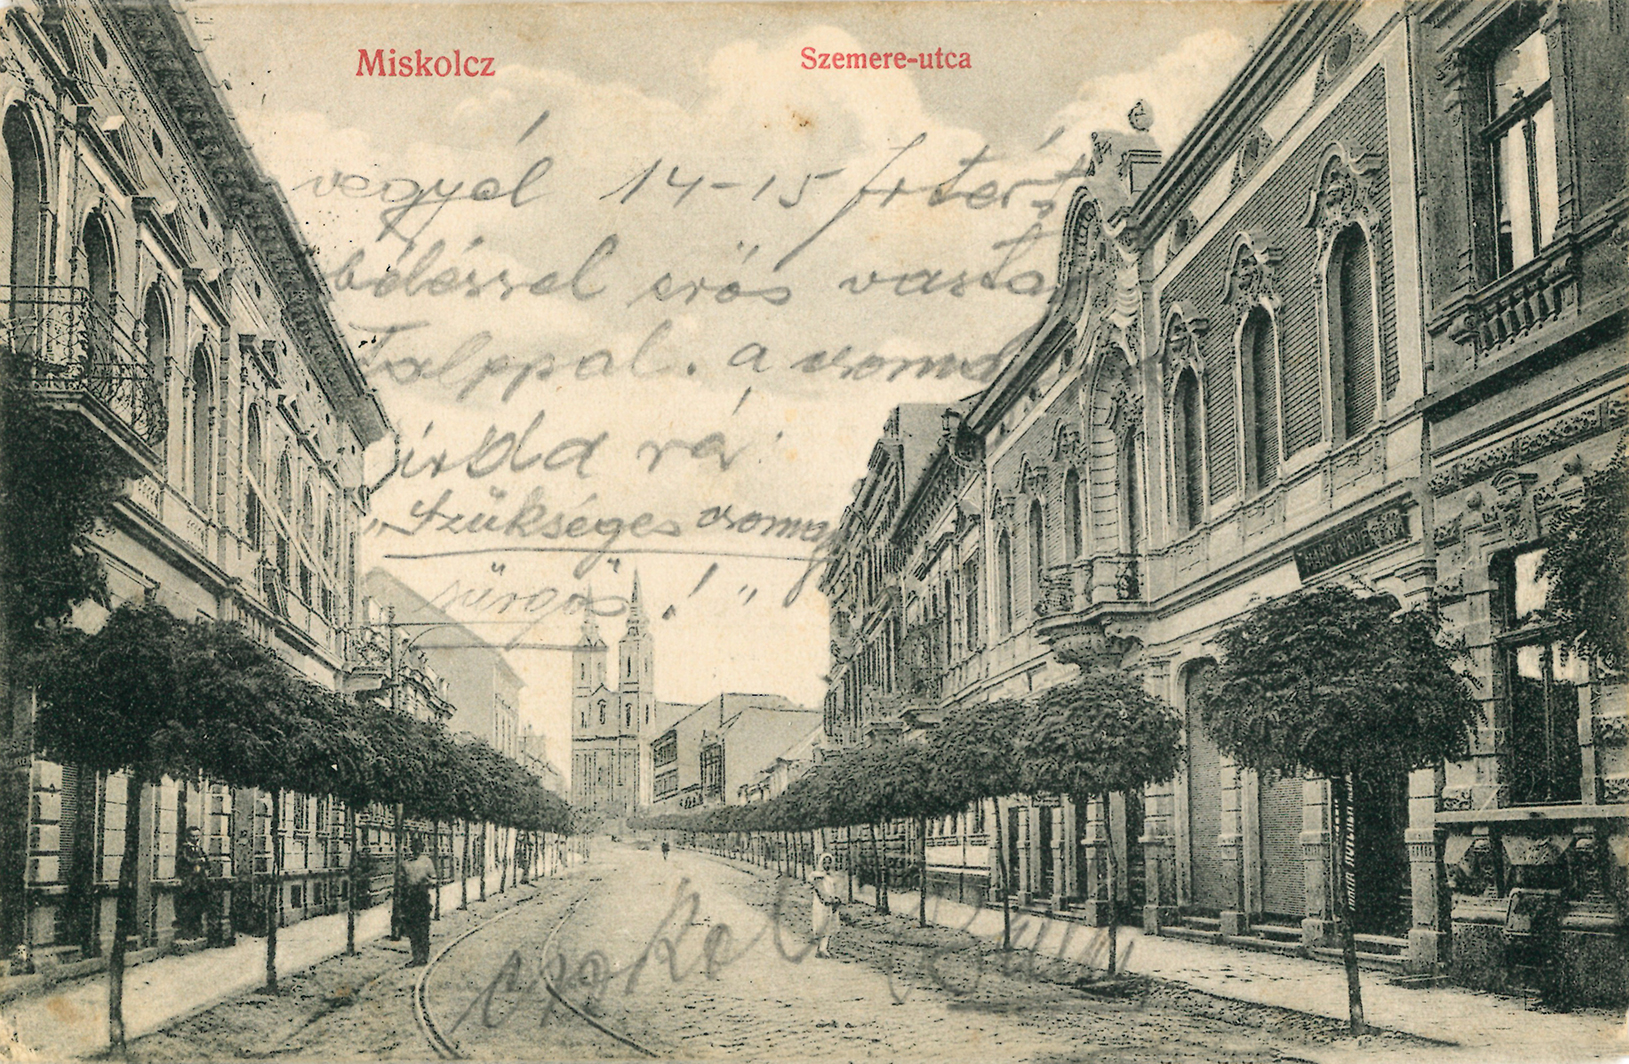 Miskolcz
Szemere-utca
vegyél 14-15 frtért
béléssel erős vasta
Talppal. a csoma
irdd rá:
„Szükséges csomag
sürgős!"
csokol